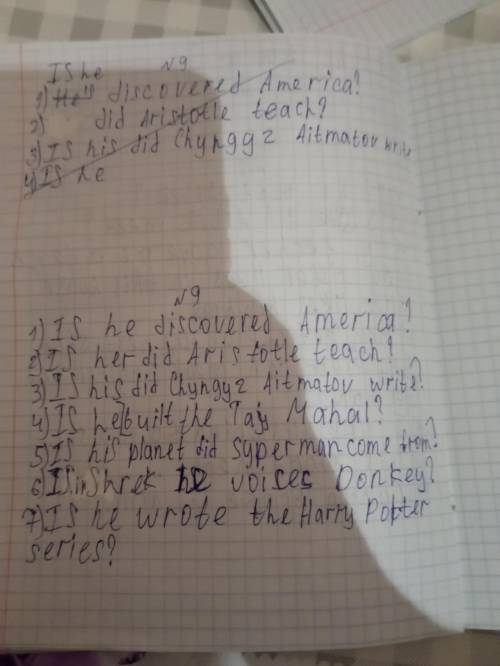 IS he
№9
1) He'' discovered America?
2) did Aristotle teach?
3) IS his did Chyngyz Aitmatov write
4) IS he
№9
1) IS he discovered America?
2) IS her did Aristotle teach?
3) IS his did Chyngyz Aitmatov write?
4) IS he built the Taj Mahal?
5) IS his planet did syperman come from?
6) IS in Shrek he voices Donkey?
7) IS he wrote the Harry Potter
series?